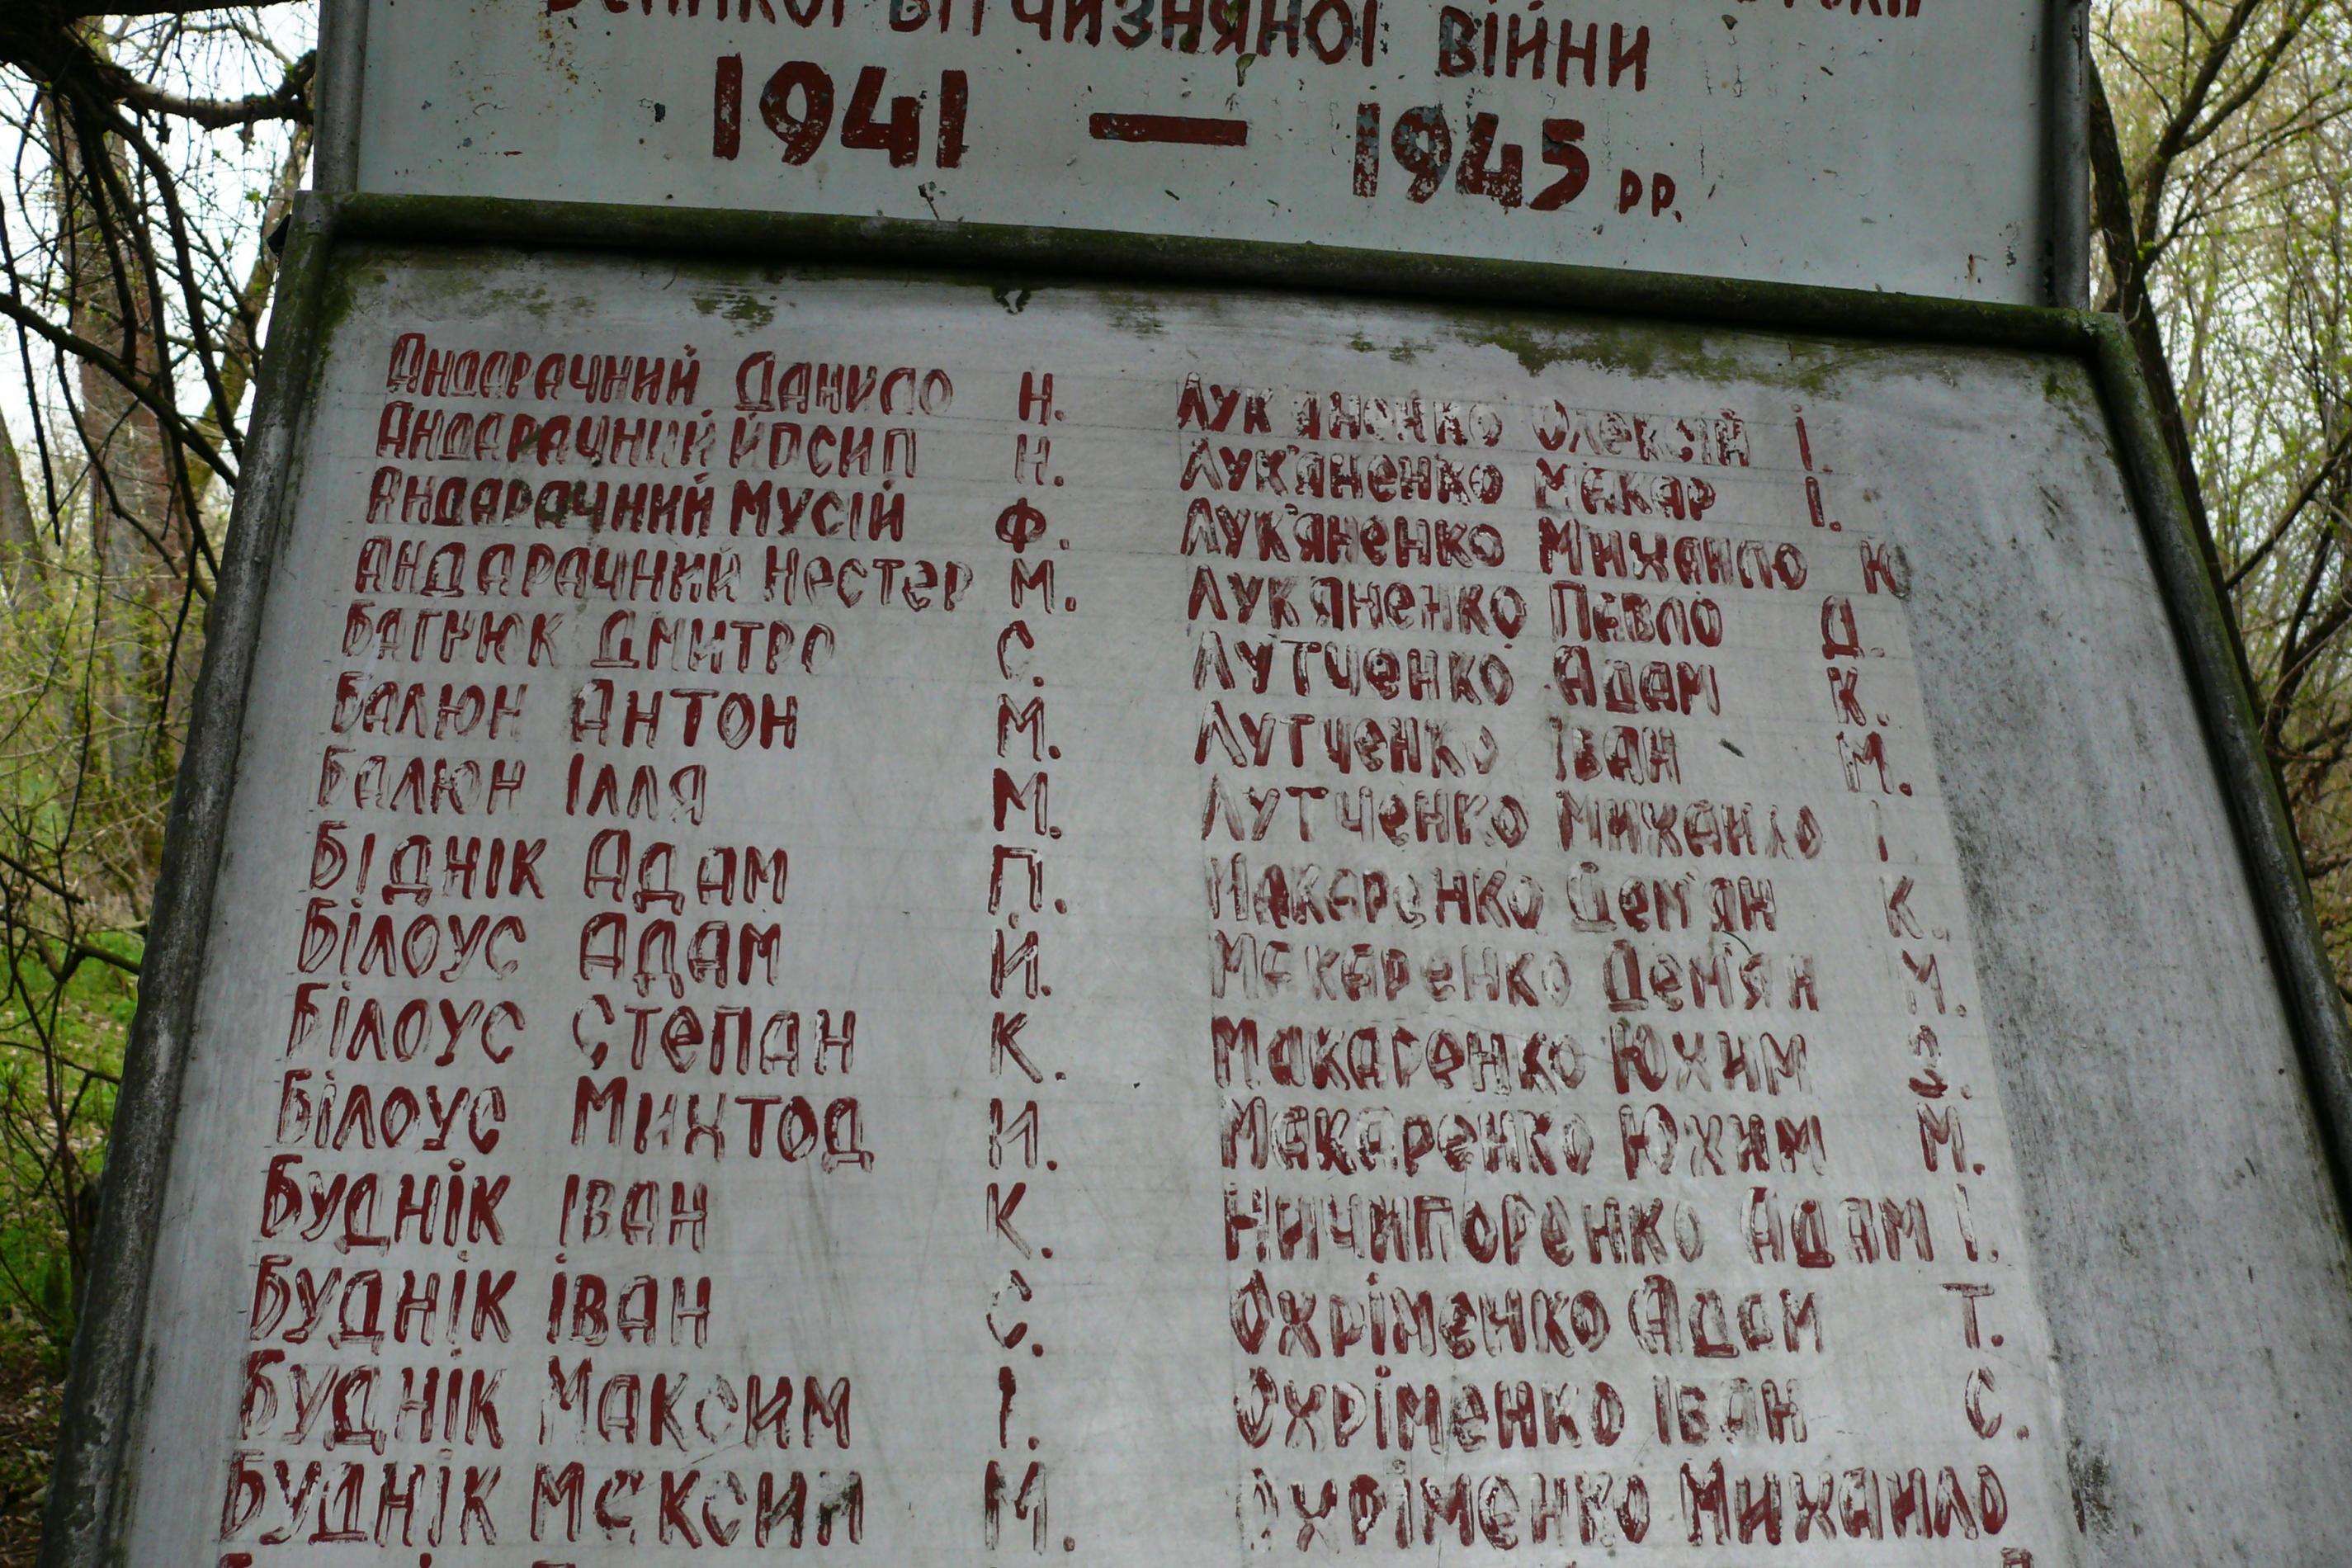 Великої Вітчизняної війни
1941 — 1945 рр.
Андарачний Данило Н.
Андарачний Йосип Н.
Андарачний Мусій Ф.
Андарачний Нестер М.
Багнюк Дмитро С.
Балюн Антон М.
Балюн Ілля М.
Біднік Адам П.
Білоус Адам Й.
Білоус Степан К.
Білоус Михтод И.
Буднік Іван К.
Буднік Іван С.
Буднік Максим І.
Буднік Максим М.
Лук'яненко Олексій І.
Лук'яненко Макар І.
Лук'яненко Михайло Ю
Лук'яненко Павло Д.
Лутченко Адам К.
Лутченко Іван М.
Лутченко Михайло І
Макаренко Дем'ян К.
Макаренко Дем'ян М.
Макаренко Юхим З.
Макаренко Юхим М.
Ничипоренко Адам І.
Охріменко Адам Т.
Охріменко Іван С.
Охріменко Михайло